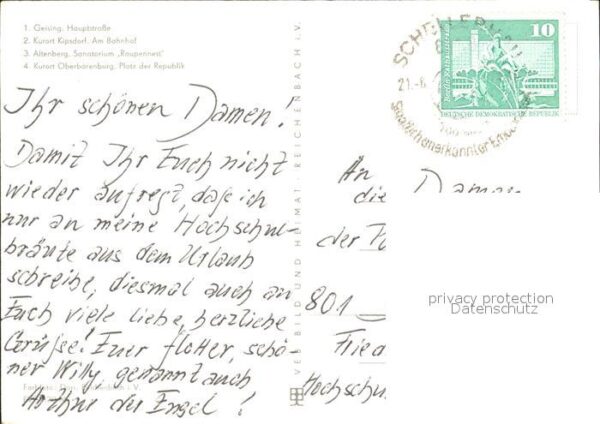 1. Geising. Hauptstraße
2. Kurort Kipsdorf. Am Bahnhof
3. Altenberg. Sanatorium „Raupennest“
4. Kurort Oberbärenburg. Platz der Republik
Ihr schönen Damen!
Damit Ihr Euch nicht
wieder aufregt, daß ich
nur an meine Hochschul-
bräute aus dem Urlaub
schreibe, diesmal auch an
Euch viele liebe, herzliche
Grüße! Euer flotter, schö-
ner Willy genannt auch
Arthur der Engel!
VEB BILD UND HEIMAT REICHENBACH i.V.
SCHELLERHAU
21.-6
Staatlich anerkannter
10
DEUTSCHE DEMOKRATISCHE REPUBLIK
An
die Damen
der
801
Fried
Hochschul
privacy protection
Datenschutz